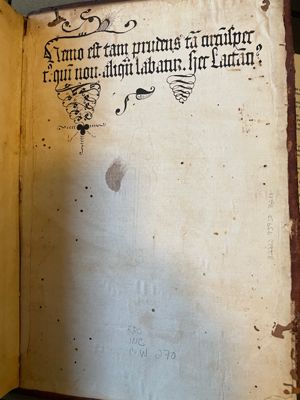 Nemo est tam prudens tā circūspec
tꝰ qui non aliqn̄ labatur hec Lactāciꝰ
580
INC
W 270